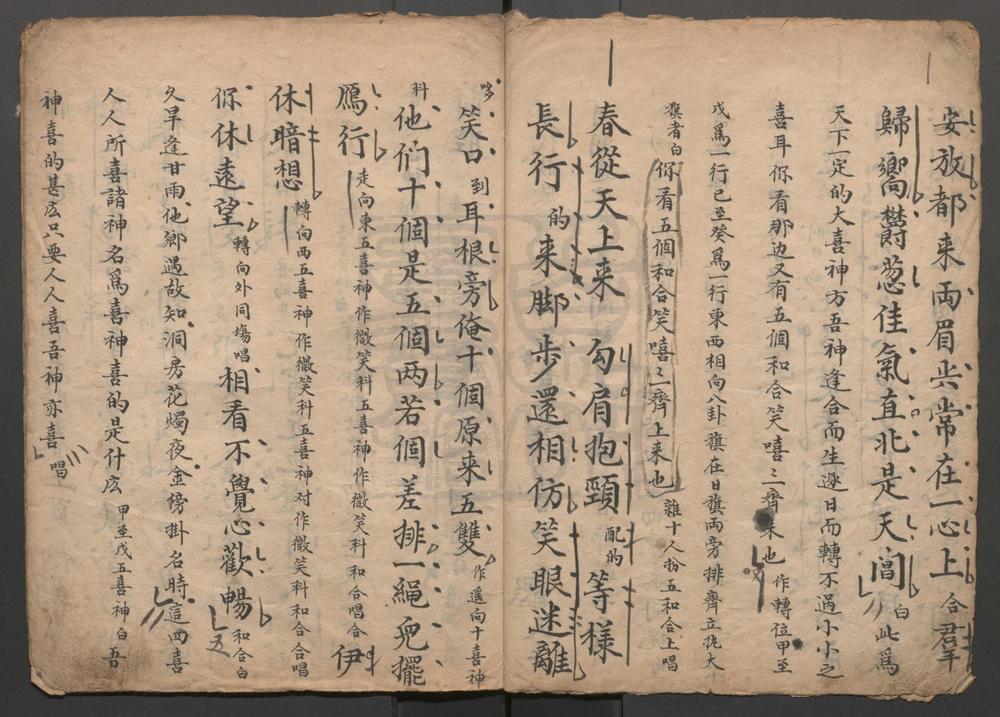 安放都来両眉尖常在一心上合羣
歸嚮欝葱佳氣直北是天閶白此爲
天下一定的大喜神方吾神逢合而生逐日而轉不過小小之
喜耳你看那边又有五個和合笑嘻〻齊来也作轉位甲至
戊爲一行已至癸爲一行東西相向八卦旗在日旗両旁排齊立抗大
旗者白你看五個和合笑嘻〻齊上来也雜十人扮五和合上唱
春從天上来勾肩抱頸配的等様
長行的来脚步還相仿笑眼迷離
哆笑口到耳根旁俺十個原来五雙作遥向十喜神
科他們十個是五個两若個差排一繩兒擺
鴈行走向東五喜神作微笑科五喜神作微笑科和合唱合伊
休暗想轉向西五喜神作微笑科五喜神对作微笑科和合合唱
你休遠望轉向外同塲唱相看不覺心歡暢和合白
久旱逢甘雨他鄉遇故知洞房花燭夜金傍掛名時這四喜
人人所喜諸神名爲喜神喜的是什庅甲至戊五喜神白吾
神喜的甚庅只要人人喜吾神亦喜唱